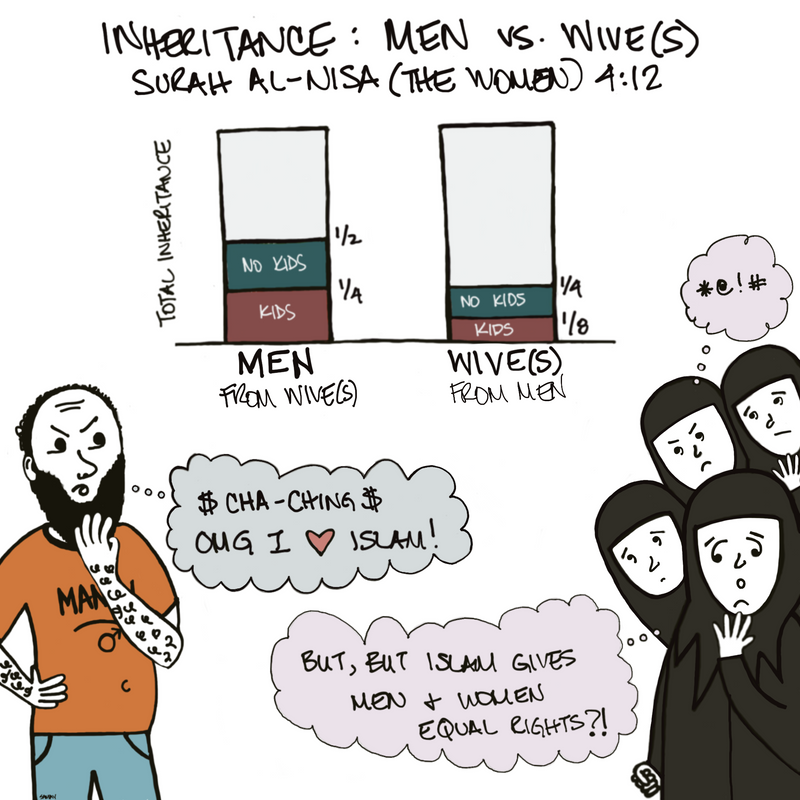 INHERITANCE: MEN VS. WIVE(S)
SURAH AL-NISA (THE WOMEN) 4:12
TOTAL INHERITANCE
1/2
NO KIDS
1/4
KIDS
1/4
NO KIDS
1/8
KIDS
MEN
FROM WIVE(S)
WIVE(S)
FROM MEN
*@!#
$ CHA-CHING $
OMG I ♥ ISLAM!
MAN
♂
BUT, BUT ISLAM GIVES
MEN + WOMEN
EQUAL RIGHTS?!